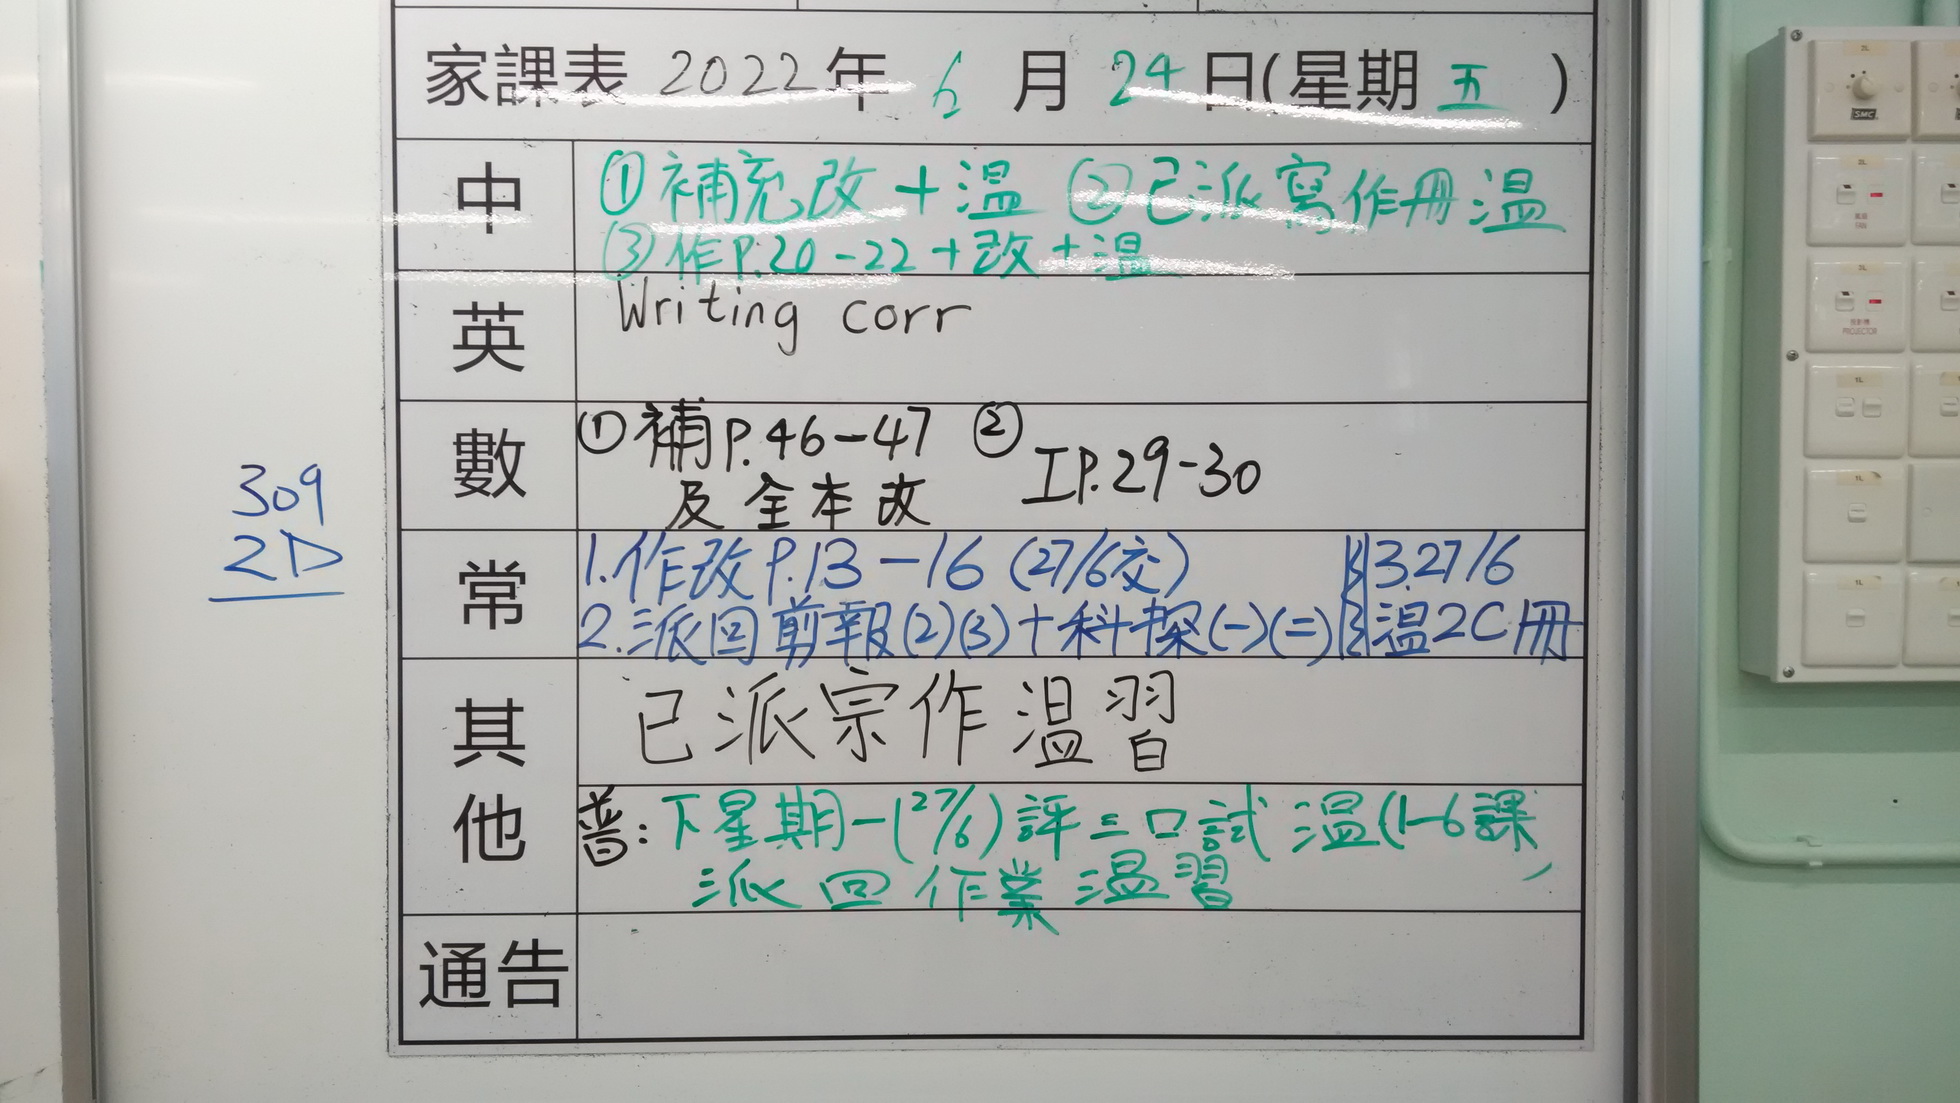 家課表 2022年 6 月 24 日(星期 五 )
中
①補充改+温 ②已派寫作冊温
③作P.20-22+改+温
英
Writing corr
數
①補P.46-47 ② IP.29-30
及全本改
309
2D
常
1.作改P.13-16 (27/6交)
2.派回剪報(2)(3)+科探(一)(二)
3.27/6
温2C冊
其他
已派宗作温習
普:下星期一(27/6)評三口試 温(1-6課
派回作業温習
通告
SMC
FAN
PROJECTOR